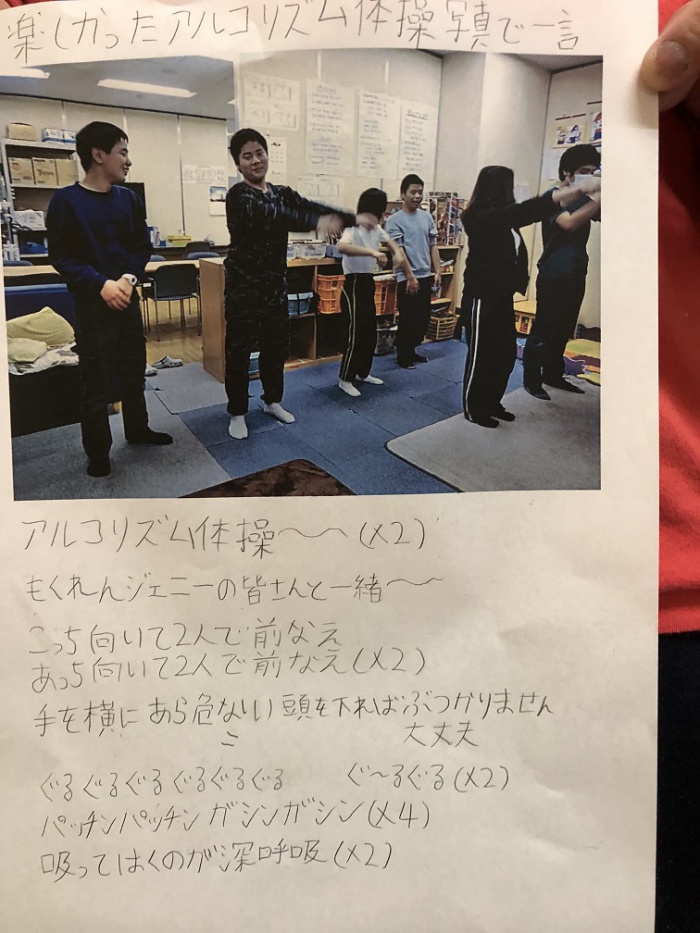 楽しかったアルコリズム体操写真で一言
アルコリズム体操〜〜(×2)
もくれんジェニーの皆さんと一緒〜〜
こっち向いて2人で前なえ
あっち向いて2人で前なえ(×2)
手を横にあら危ない頭を下ればぶつかりません
大丈夫
ぐるぐるぐるぐるぐるぐる ぐ〜るぐる(×2)
パッチンパッチン ガシンガシン(×4)
吸ってはくのが深呼吸(×2)